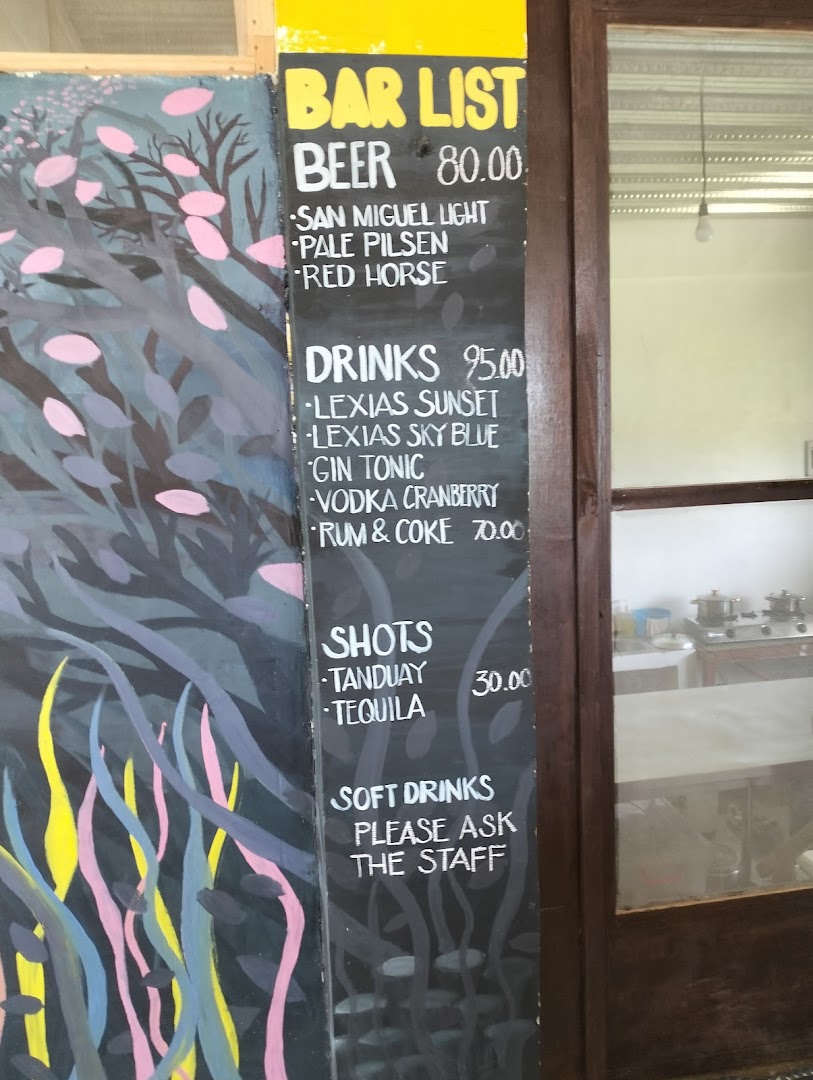 BAR LIST
BEER 80.00
·SAN MIGUEL LIGHT
·PALE PILSEN
·RED HORSE
DRINKS 95.00
·LEXIAS SUNSET
·LEXIAS SKY BLUE
·GIN TONIC
·VODKA CRANBERRY
·RUM & COKE 70.00
SHOTS
·TANDUAY 30.00
·TEQUILA
SOFT DRINKS
PLEASE ASK
THE STAFF